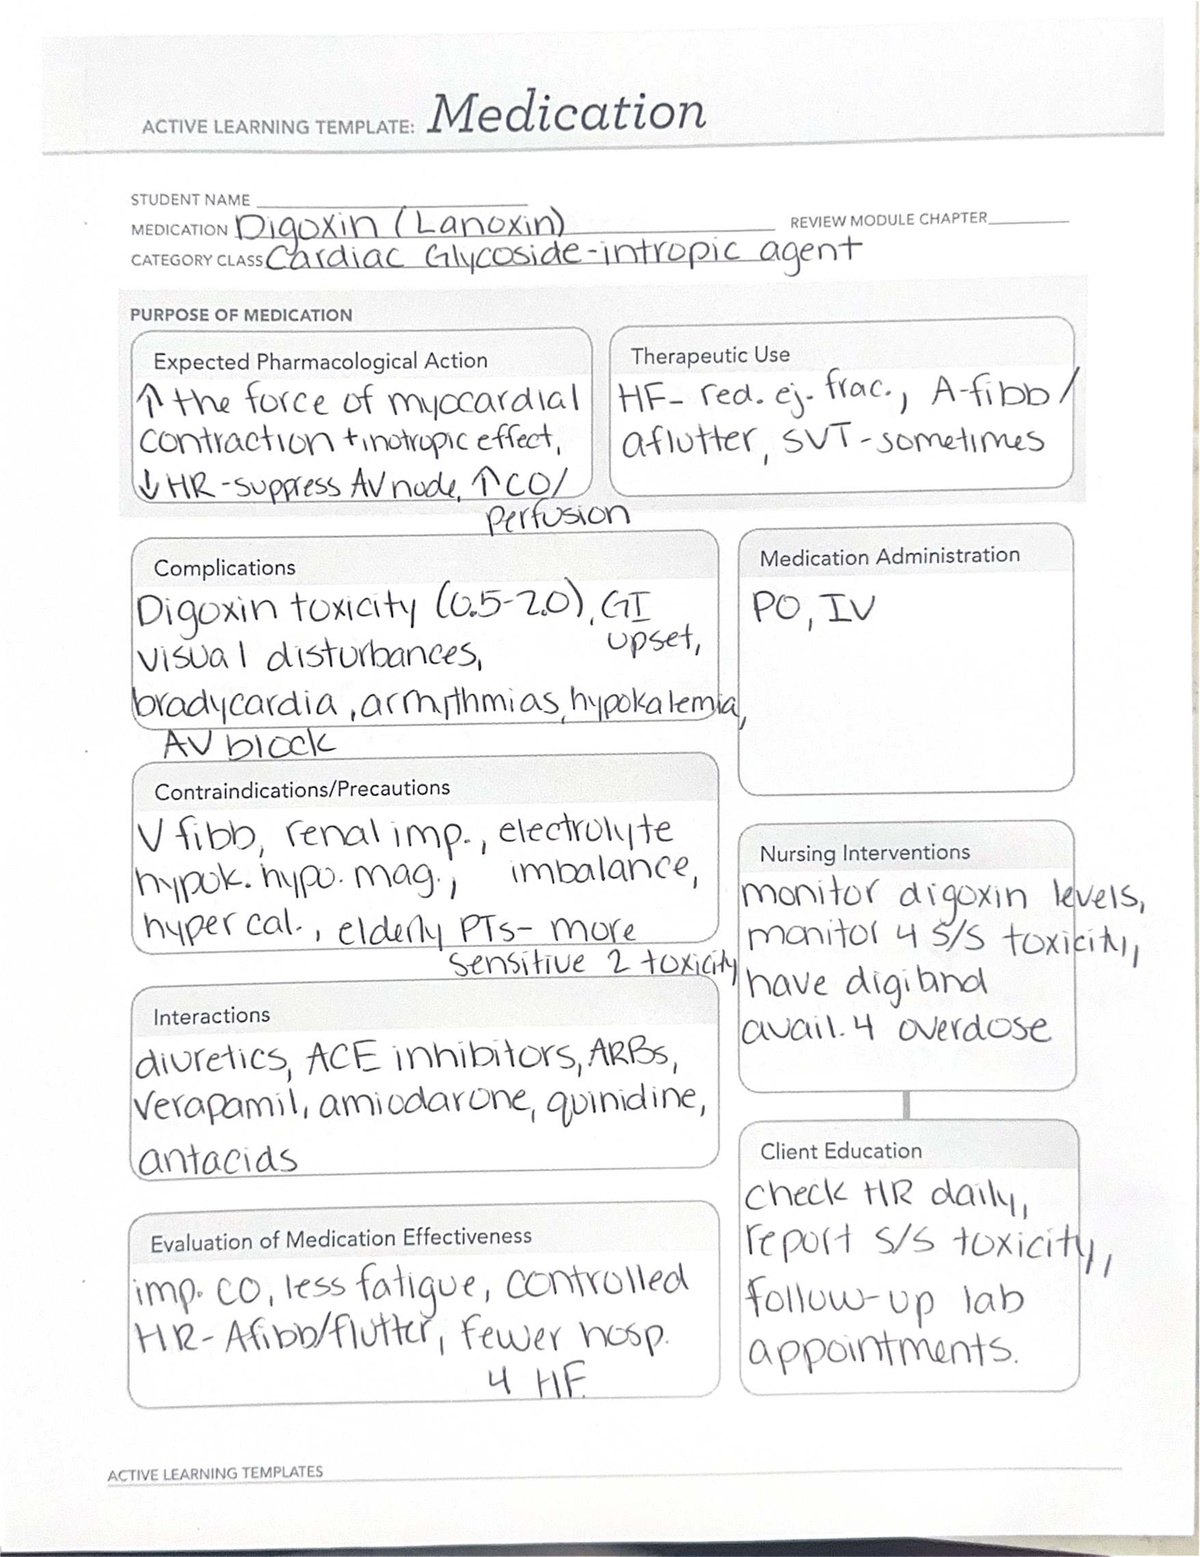 ACTIVE LEARNING TEMPLATE: Medication
STUDENT NAME
MEDICATION Digoxin (Lanoxin)
REVIEW MODULE CHAPTER
CATEGORY CLASS Cardiac Glycoside-intropic agent
PURPOSE OF MEDICATION
Expected Pharmacological Action
↑ the force of myocardial
contraction +inotropic effect,
↓ HR-suppress AV node, ↑ CO/
perfusion
Therapeutic Use
HF- red. ej. frac., A-fibb/
aflutter, SVT-sometimes
Complications
Digoxin toxicity (0.5-2.0), GI
upset,
visual disturbances,
bradycardia, arrhythmias, hypokalemia,
AV block
Medication Administration
PO, IV
Contraindications/Precautions
V fibb, renal imp., electrolyte
hypok. hypo. mag., imbalance,
hyper cal., elderly PTs- more
sensitive 2 toxicity
Nursing Interventions
monitor digoxin levels,
monitor 4 s/s toxicity,
have digiband
avail. 4 overdose
Interactions
diuretics, ACE inhibitors, ARBs,
verapamil, amiodarone, quinidine,
antacids
Client Education
check HR daily,
report s/s toxicity,
follow-up lab
appointments.
Evaluation of Medication Effectiveness
imp. CO, less fatigue, controlled
HR- Afibb/flutter, fewer hosp.
4 HF
ACTIVE LEARNING TEMPLATES